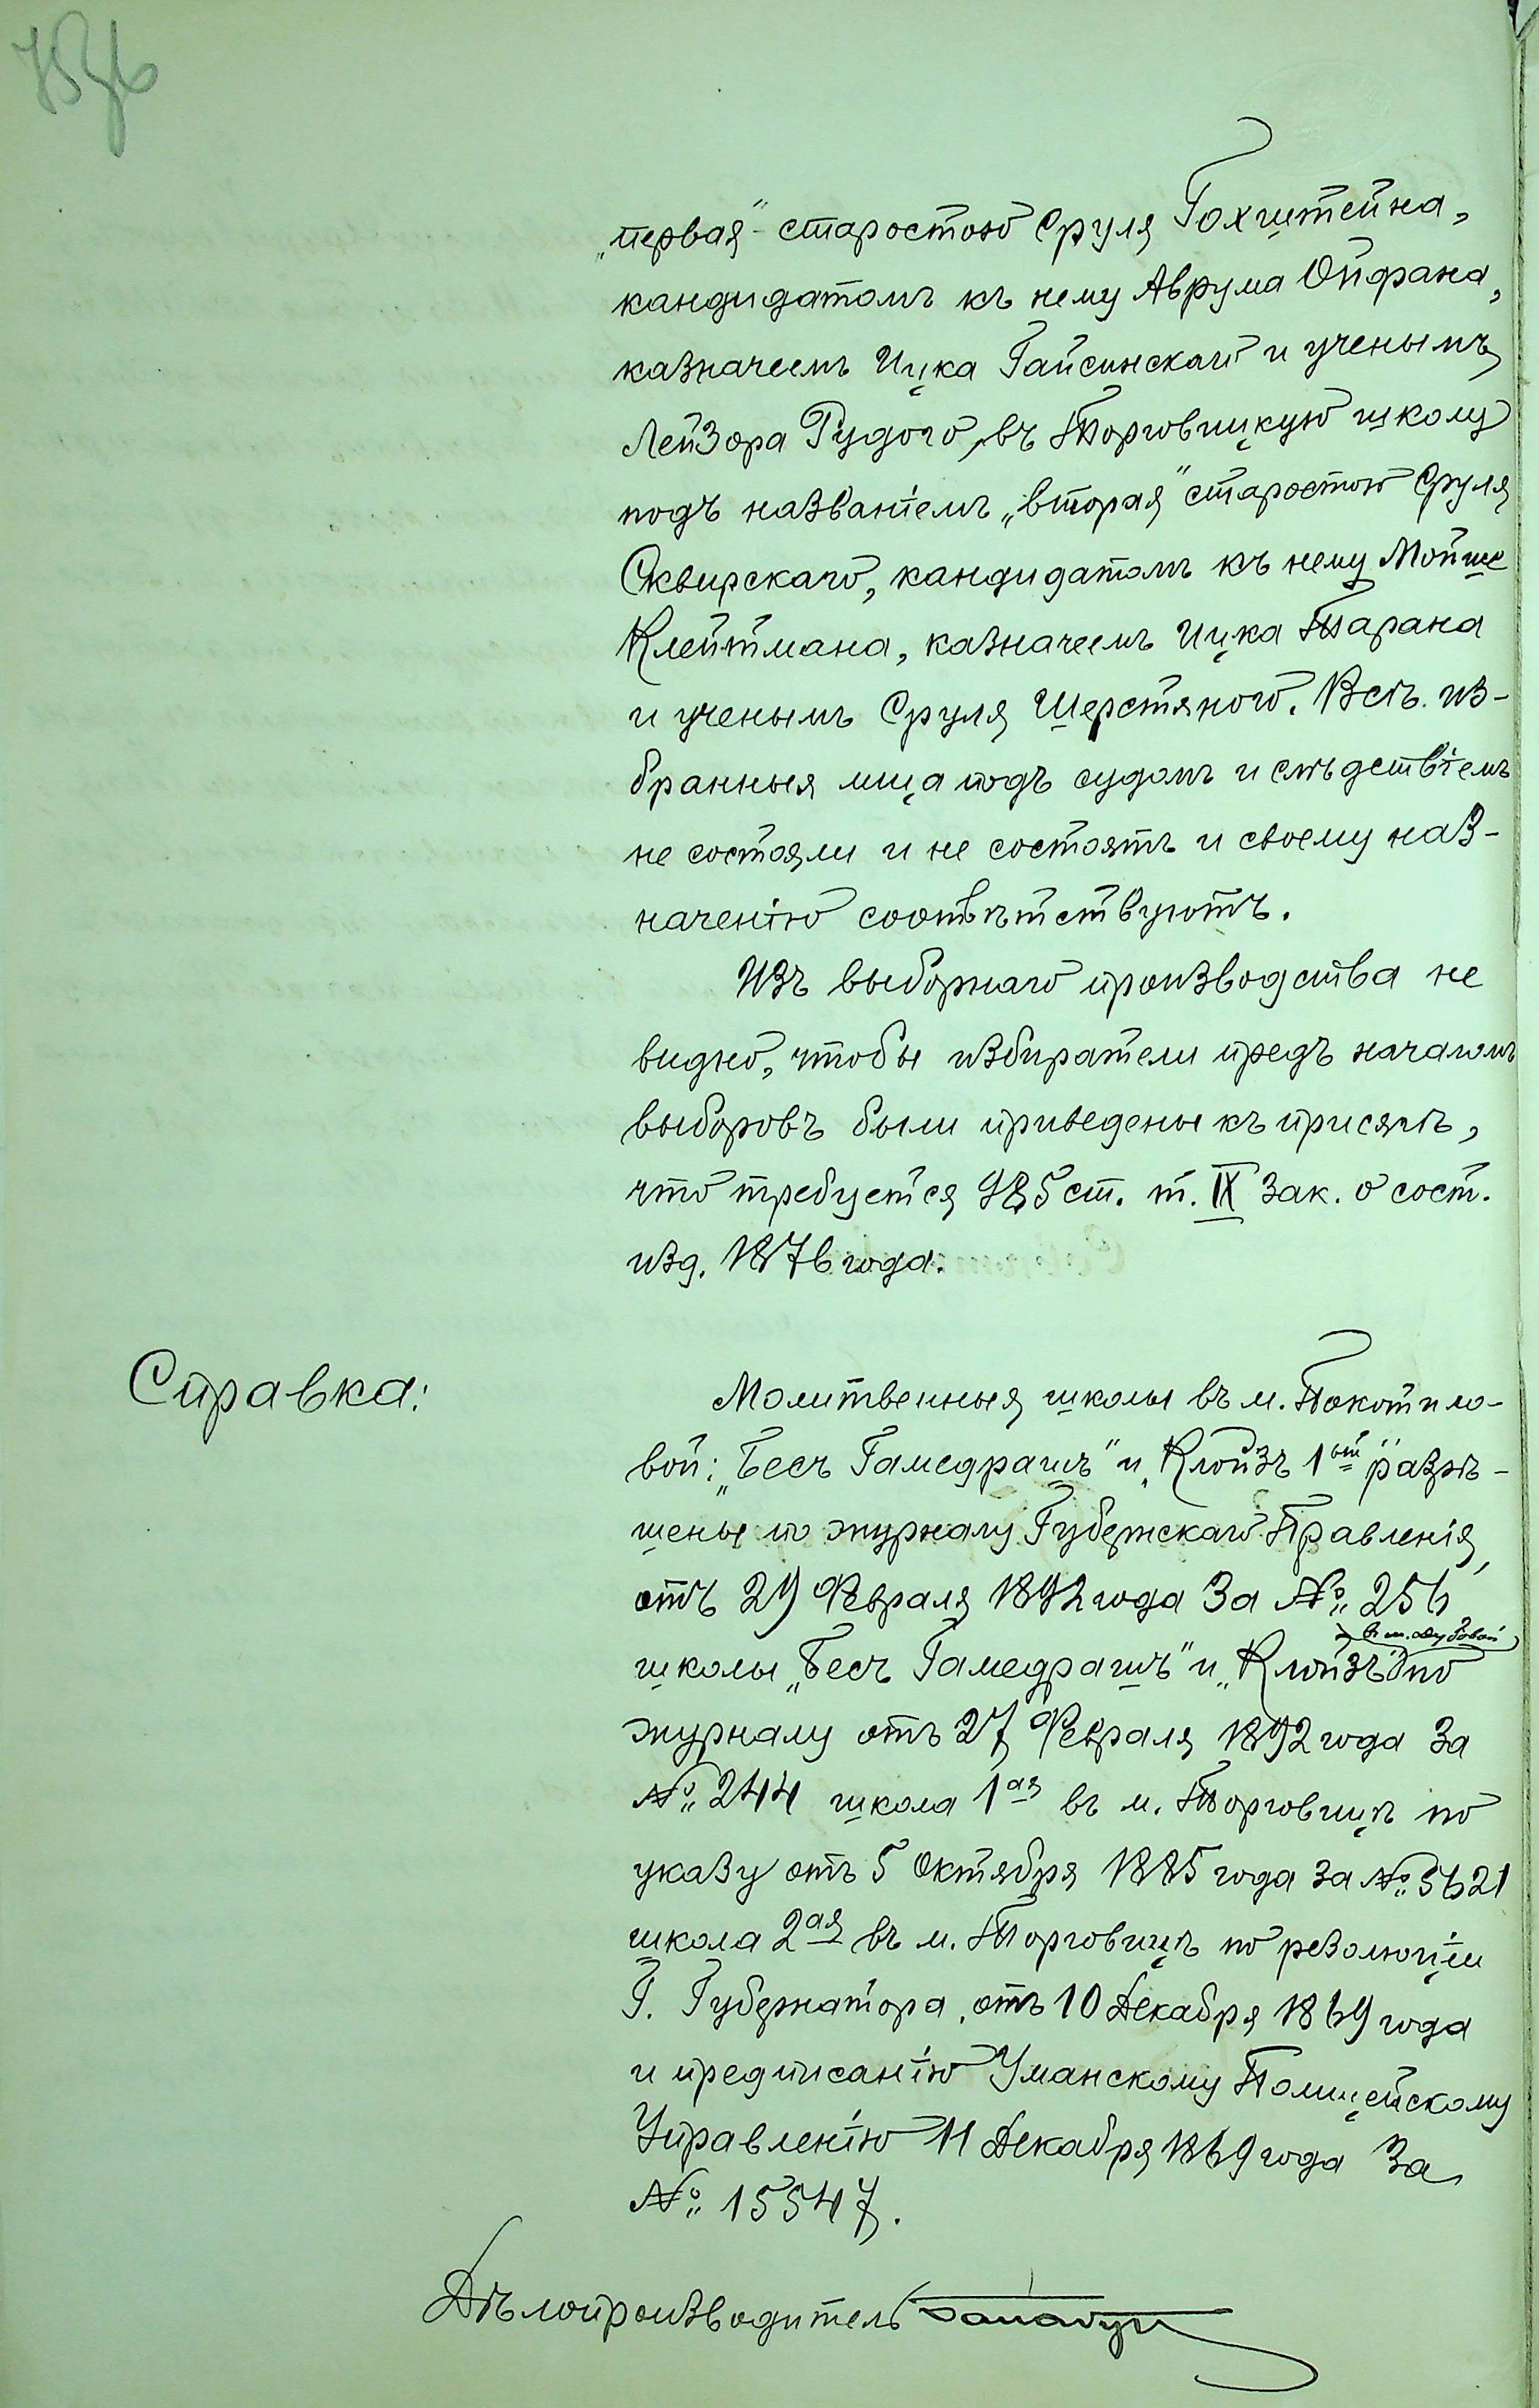 „первая“ старостою Сруля Гохштейна,
кандидатомъ къ нему Аврума Ойфана,
казначеемъ Ицка Гайсинскаго и ученымъ
Лейзора Рудого, въ Торговицкую школу
подъ названіемъ „вторая“ старостою Сруля
Сквирскаго, кандидатомъ къ нему Мойше
Клейтмана, казначеемъ Ицка Тарана
и ученымъ Сруля Шерстяного. Всѣ из-
бранныя лица подъ судомъ и слѣдствіемъ
не состояли и не состоятъ и своему наз-
наченію соотвѣтствуютъ.
Изъ выборнаго производства не
видно, чтобы избиратели предъ началомъ
выборовъ были приведены къ присягѣ,
что требуется 985 ст. т. IX зак. о сост.
изд. 1876 года.
Справка:
Молитвенныя школы въ м. Покотило-
вой: „Бесъ Гамедрашъ“ и „Клойзъ 1ый“ разрѣ-
шены по журналу Губернскаго Правленія,
отъ 29 Февраля 1892 года за № 256
въ м. Дубовой
школы „Бесъ Гамедрашъ“ и „Клойзъ“ по
журналу отъ 27 Февраля 1892 года за
№ 244 школа 1ая въ м. Торговицѣ по
указу отъ 5 Октября 1885 года за № 5621
школа 2ая въ м. Торговицѣ по резолюціи
Г. Губернатора, отъ 10 Декабря 1869 года
и предписанію Уманскому Полицейскому
Управленію 11 Декабря 1869 года за
№ 15547.
Дѣлопроизводитель